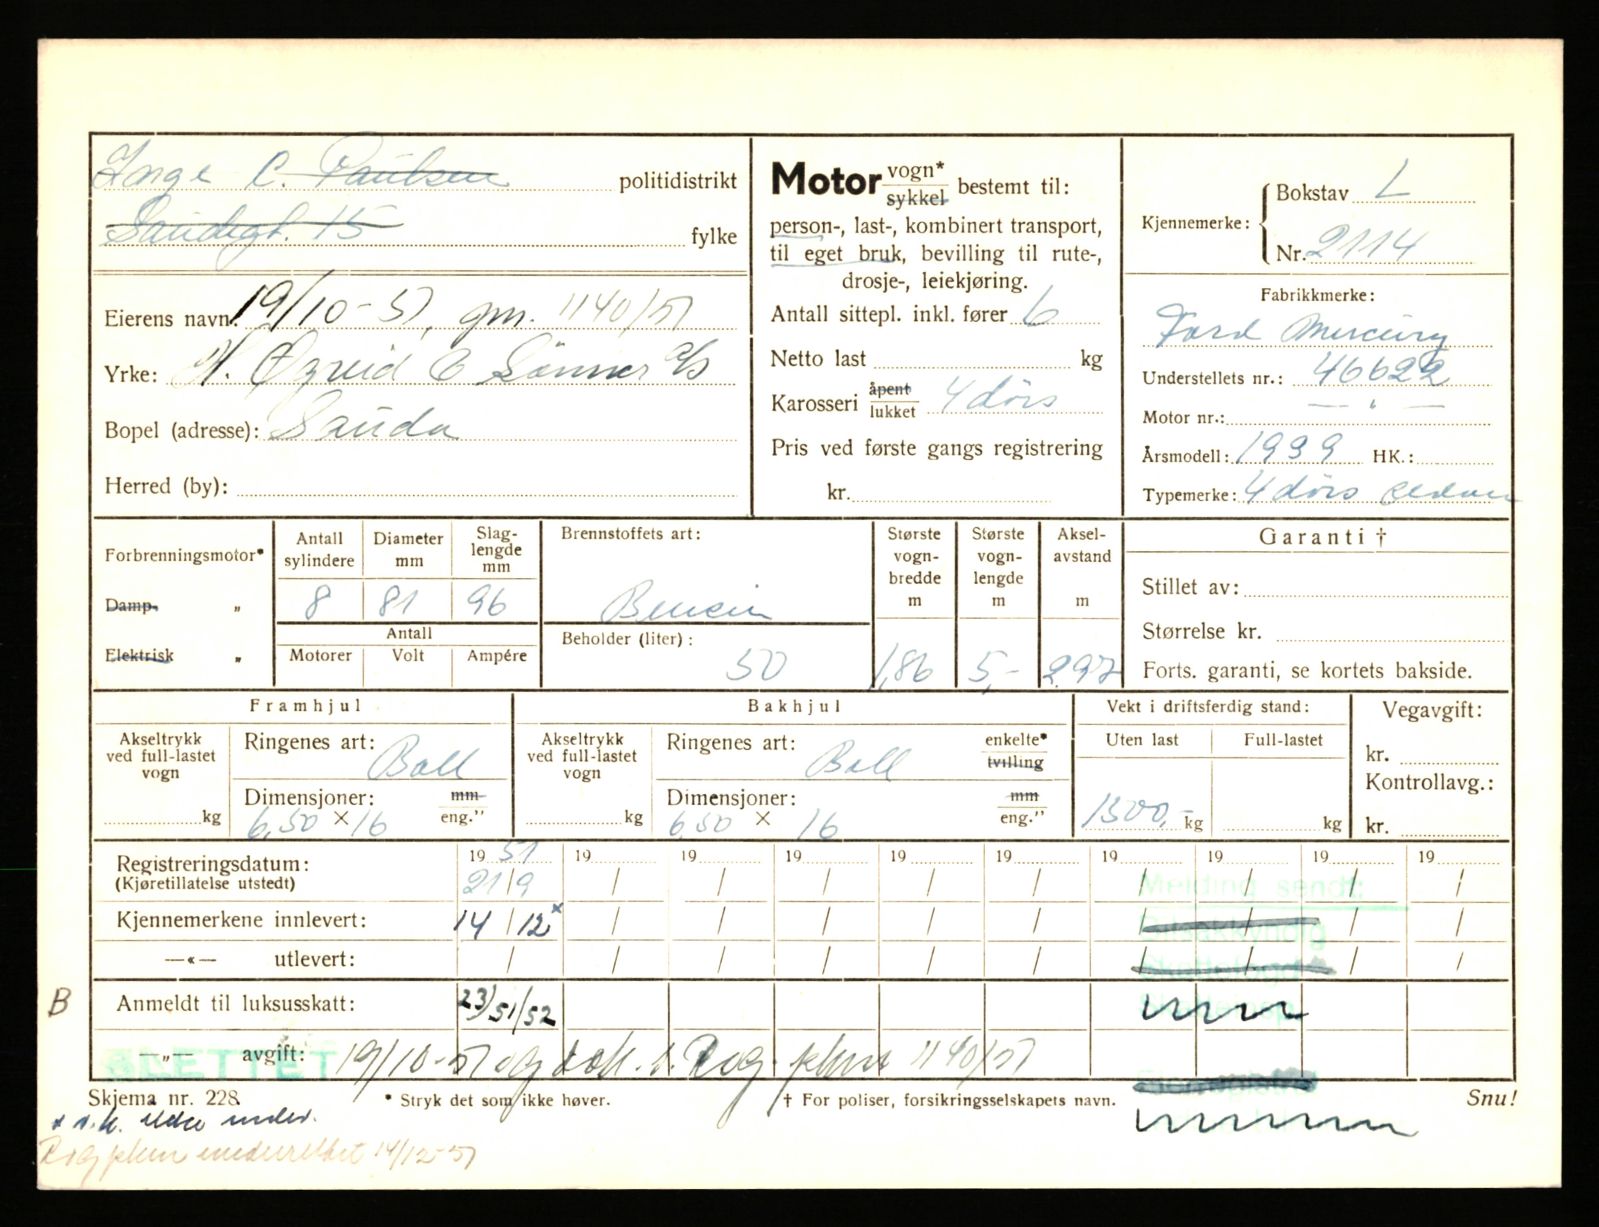 Inge C. Paulsen politidistrikt
Saudagt. 15 fylke
Eierens navn: 19/10-51, gm. 1140/51
Yrke: & Sønner A/S
Bopel (adresse): Sauda
Herred (by):
Motor vogn* sykkel bestemt til:
person-, last-, kombinert transport,
til eget bruk, bevilling til rute-,
drosje-, leiekjøring.
Antall sittepl. inkl. fører 6
Netto last kg
Karosseri åpent lukket 4 dørs
Pris ved første gangs registrering
kr.
Kjennemerke: Bokstav L
Nr. 2114
Fabrikkmerke:
Ford Mercury
Understellets nr.: 46622
Motor nr.: — " —
Årsmodell: 1939 HK.:
Typemerke: 4 dørs sedan
Forbrenningsmotor*
Damp- "
Elektrisk "
Antall sylindere 8
Diameter mm 81
Slaglengde mm 96
Antall
Motorer Volt Ampére
Brennstoffets art:
Bensin
Beholder (liter):
50
Største vognbredde m 1,86
Største vognlengde m 5,-
Akselavstand m 2.97
Garanti †
Stillet av:
Størrelse kr.
Forts. garanti, se kortets bakside.
Framhjul
Akseltrykk ved full-lastet vogn kg
Ringenes art: Ball
Dimensjoner: mm eng."
6,50 × 16
Bakhjul
Akseltrykk ved full-lastet vogn kg
Ringenes art: Ball enkelte* tvilling
Dimensjoner: mm eng."
650 × 16
Vekt i driftsferdig stand:
Uten last Full-lastet
1300,- kg kg
Vegavgift:
kr.
Kontrollavg.:
kr.
Registreringsdatum: 19 51 19 19 19 19 19 19 19 19 19
(Kjøretillatelse utstedt) 21/9 / / / / / / / / /
Melding sendt:
Kjennemerkene innlevert: 14/12 x / / / / / / / / /
—«— utlevert: / / / / / / / / / /
B Anmeldt til luksusskatt: 23/51/52
—„— avgift: SLETTET 19/10-51 1140/51
Skjema nr. 228 * Stryk det som ikke høver. † For poliser, forsikringsselskapets navn. Snu!
14/12-51